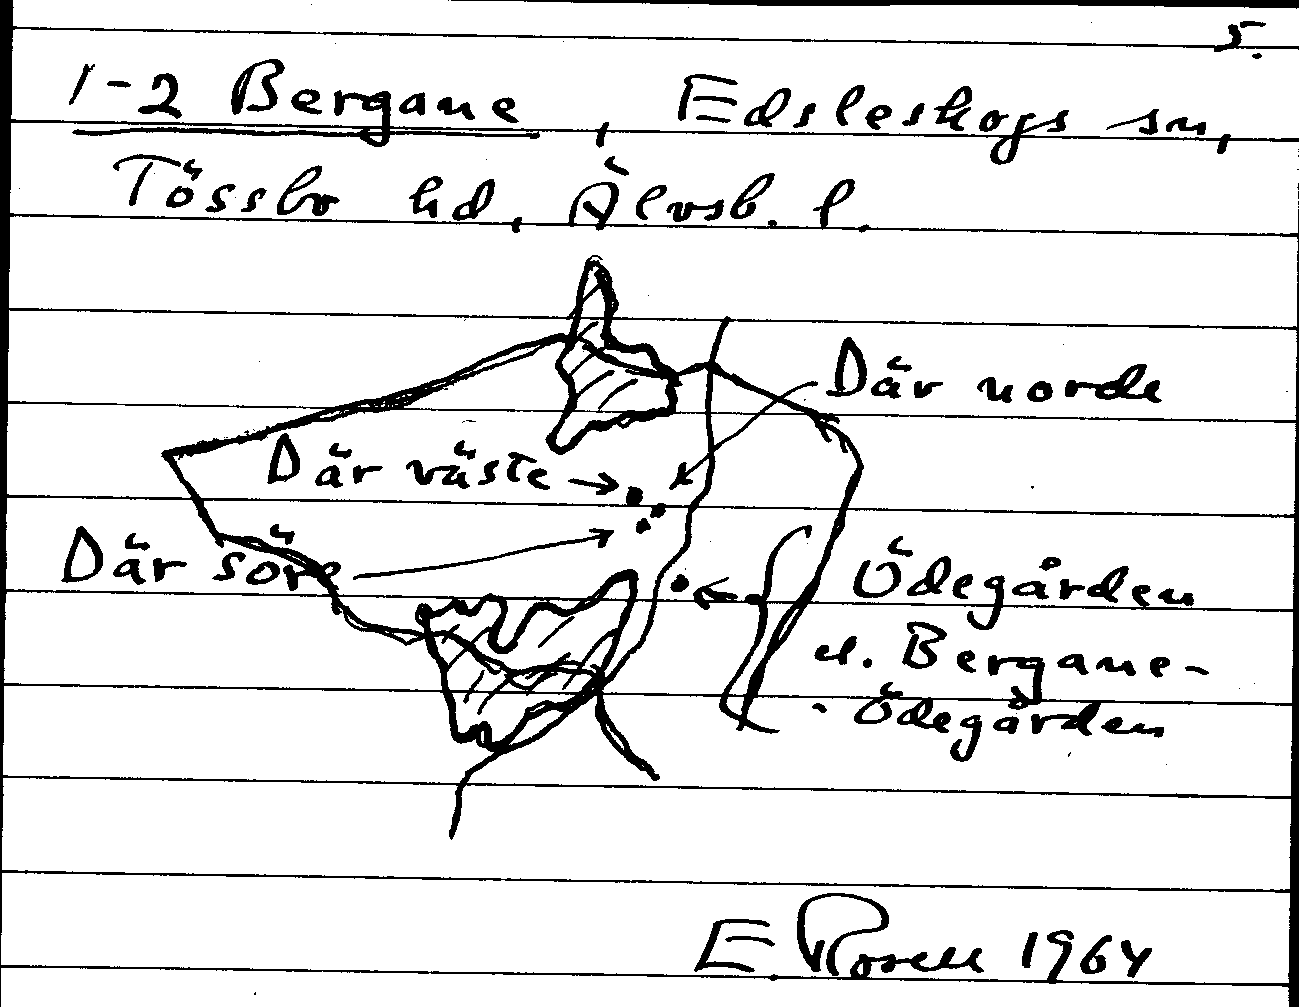 5.
1-2 Bergane, Edsleskogs sn,
Tössbo hd, Älvsb. l.
Där norde
Där väste
Där söre
Ödegården
el. Bergane-
-Ödegården
E. Rosell 1964